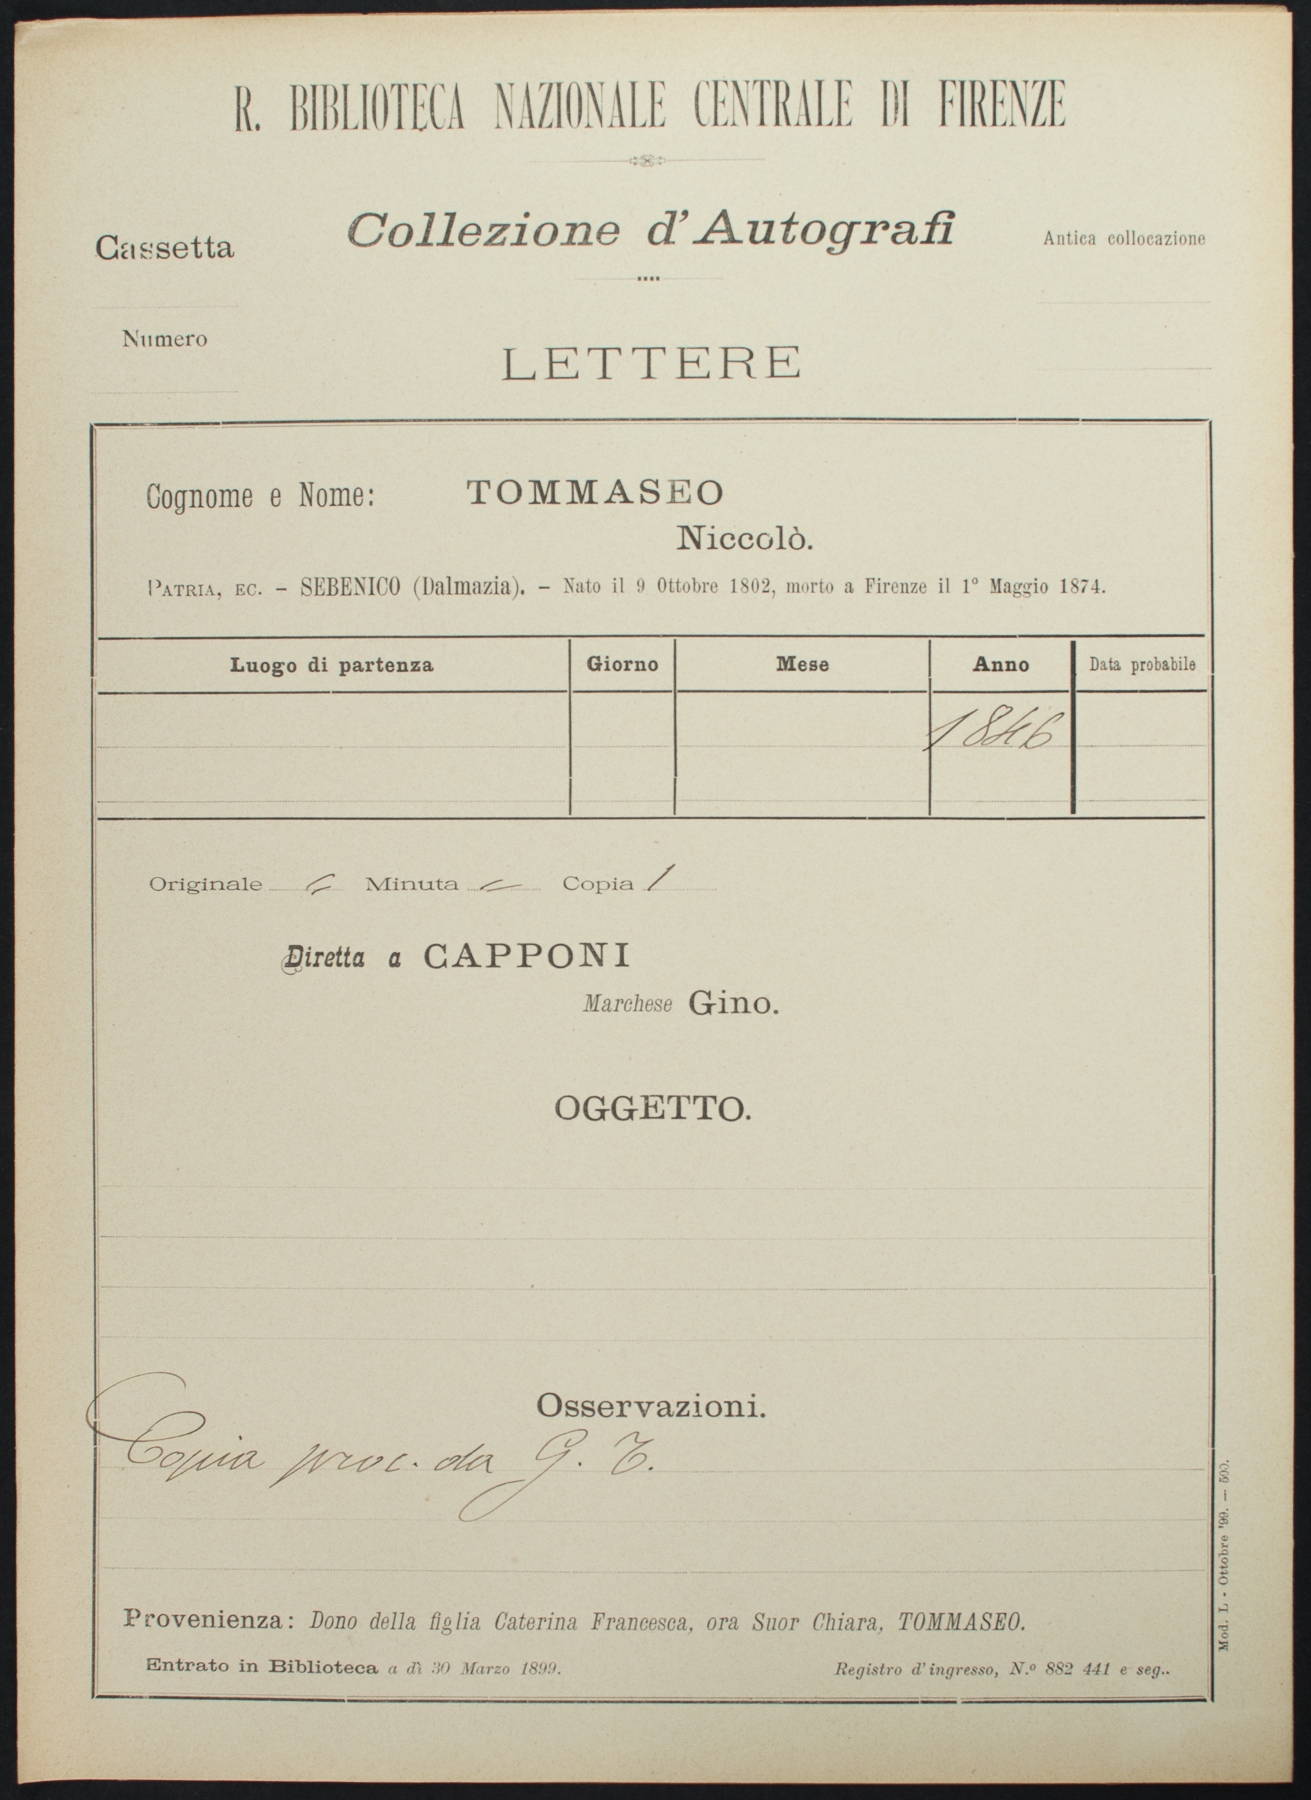 R. BIBLIOTECA NAZIONALE CENTRALE DI FIRENZE
Collezione d'Autografi
Cassetta
Antica collocazione
Numero
LETTERE
Cognome e Nome: TOMMASEO
Niccolò.
PATRIA, EC. – SEBENICO (Dalmazia). – Nato il 9 Ottobre 1802, morto a Firenze il 1° Maggio 1874.
Luogo di partenza Giorno Mese Anno Data probabile
1846
Originale Minuta Copia 1
Diretta a CAPPONI
Marchese Gino.
OGGETTO.
Osservazioni.
Copia proc. da G. T.
Provenienza: Dono della figlia Caterina Francesca, ora Suor Chiara, TOMMASEO.
Entrato in Biblioteca a dì 30 Marzo 1899. Registro d'ingresso, N.º 882 441 e seg..
Mod. L - Ottobre '99. — 500.